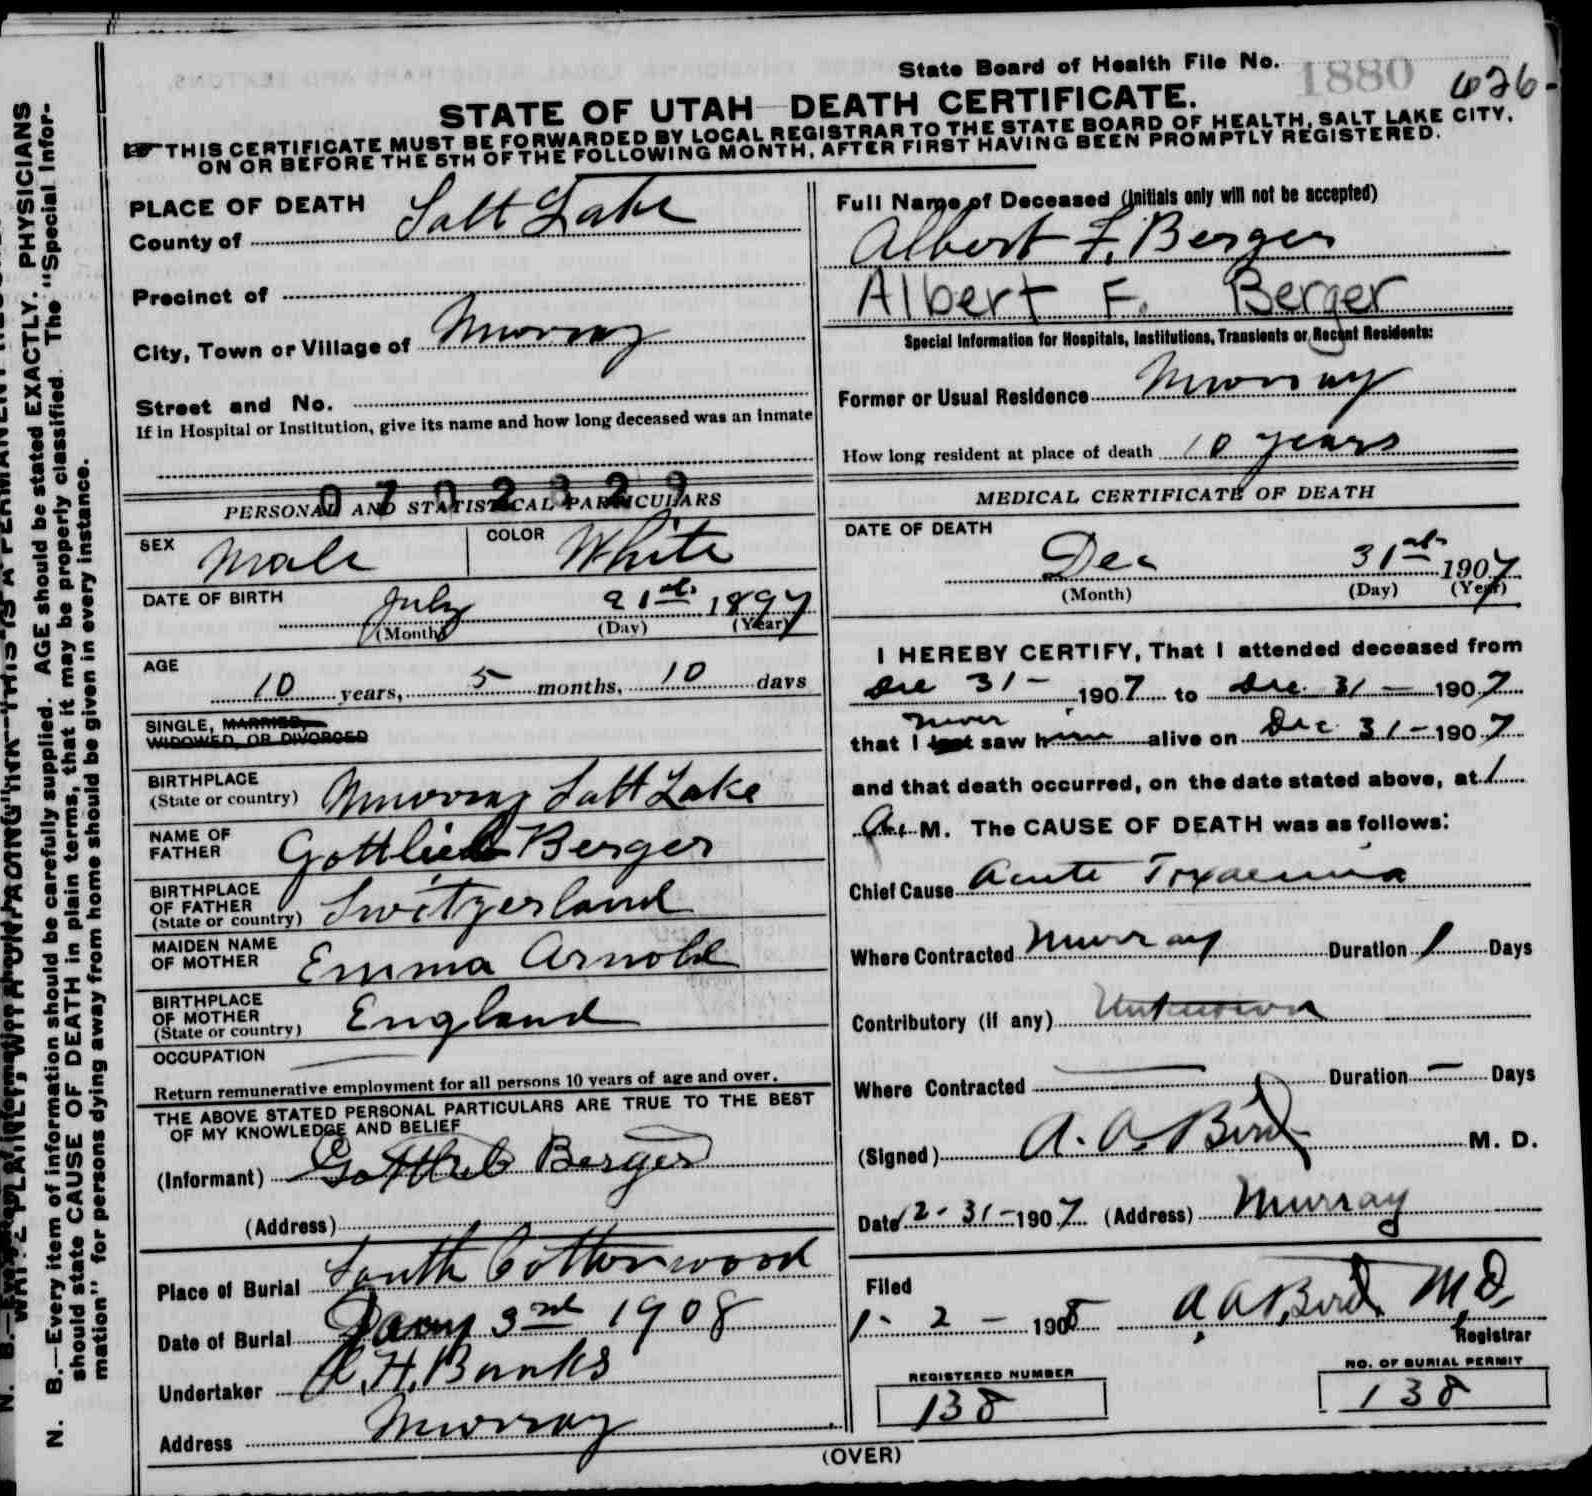 State Board of Health File No. 1880 426-
STATE OF UTAH—DEATH CERTIFICATE.
THIS CERTIFICATE MUST BE FORWARDED BY LOCAL REGISTRAR TO THE STATE BOARD OF HEALTH, SALT LAKE CITY,
ON OR BEFORE THE 5TH OF THE FOLLOWING MONTH, AFTER FIRST HAVING BEEN PROMPTLY REGISTERED.
PLACE OF DEATH
County of Salt Lake
Precinct of
City, Town or Village of Murray
Street and No.
If in Hospital or Institution, give its name and how long deceased was an inmate
0702329
PERSONAL AND STATISTICAL PARTICULARS
SEX Male COLOR White
DATE OF BIRTH July 21st 1897
(Month) (Day) (Year)
AGE
10 years, 5 months, 10 days
SINGLE, MARRIED,
WIDOWED, OR DIVORCED
BIRTHPLACE
(State or country) Murray Salt Lake
NAME OF
FATHER Gottlieb Berger
BIRTHPLACE
OF FATHER
(State or country) Switzerland
MAIDEN NAME
OF MOTHER Emma Arnold
BIRTHPLACE
OF MOTHER
(State or country) England
OCCUPATION
Return remunerative employment for all persons 10 years of age and over.
THE ABOVE STATED PERSONAL PARTICULARS ARE TRUE TO THE BEST
OF MY KNOWLEDGE AND BELIEF
(Informant) Gottlieb Berger
(Address)
Place of Burial South Cottonwood
Date of Burial Jany 3rd 1908
Undertaker H. Banks
Address Murray
Full Name of Deceased (Initials only will not be accepted)
Albert F. Berger
Albert F. Berger
Special Information for Hospitals, Institutions, Transients or Recent Residents:
Former or Usual Residence Murray
How long resident at place of death 10 years
MEDICAL CERTIFICATE OF DEATH
DATE OF DEATH
Dec 31st 1907
(Month) (Day) (Year)
I HEREBY CERTIFY, That I attended deceased from
Dec 31- 1907 to Dec. 31- 1907
never
that I last saw him alive on Dec 31- 1907
and that death occurred, on the date stated above, at 1
A. M. The CAUSE OF DEATH was as follows:
Chief Cause Acute Toxaemia
Where Contracted Murray Duration 1 Days
Contributory (if any) Unknown
Where Contracted — Duration — Days
(Signed) A. A. Bird M. D.
Date 12-31-1907 (Address) Murray
Filed
1- 2 - 1908 A. A. Bird. M.D.
Registrar
REGISTERED NUMBER
138
NO. OF BURIAL PERMIT
138
(OVER)
N. B.—Every item of information should be carefully supplied. AGE should be stated EXACTLY. PHYSICIANS
should state CAUSE OF DEATH in plain terms, that it may be properly classified. The "Special Infor-
mation" for persons dying away from home should be given in every instance.